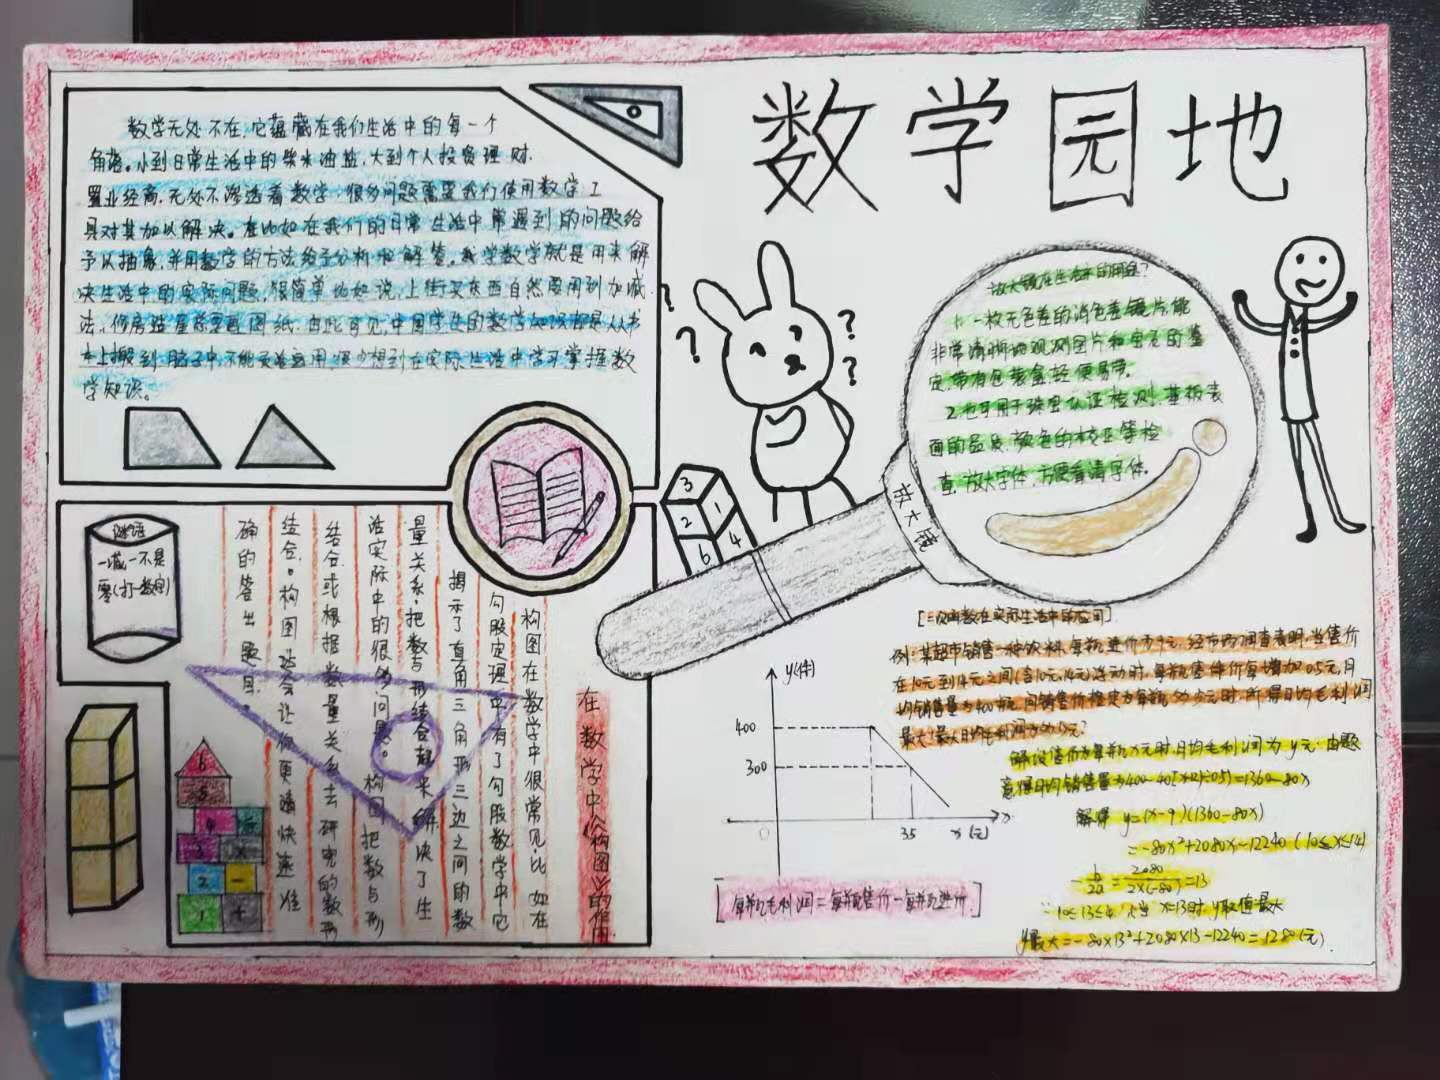 数学园地
数学无处不在,它蕴藏在我们生活中的每一个
角落。小到日常生活中的柴米油盐,大到个人投资理财.
置业经商,无处不渗透着数学,很多问题需要我们使用数学工
具对其加以解决。在比如在我们的日常生活中常遇到的问题给
予以抽象,并用数学的方法给予分析和解答。我学数学就是用来解
决生活中的实际问题,很简单比如说,上街买东西自然要用到加减
法,修房造屋总要画图纸.由此可见,中国学生的数学知识都是从书
本上搬到脑子中,不能灵活运用,很少想到在实际生活中学习掌握数
学知识。
放大镜在生活中的用途?
1.一枚无色差的消色差镜片,能
非常清晰地观测图片和宝石的鉴
定,带有包装盒,轻便易带。
2.也可用于珠宝认证检测,基板表
面的品质,颜色的校正等检
查,放大字体,方便看清字体。
放大镜
3
2 1
6 4
谜语
一减一不是
零(打一数字)
在数学中《构图》的作用
构图在数学中很常见,比如在
勾股定理中有了勾股数学中它
揭示了直角三角形三边之间的数
量关系,把数与形结合起来解决了生
活实际中的很多问题。构图把数与形
结合或根据数量关系去研究的数形
结合。构图法会让你更清快速准
确的答出题目。
6
5
4
3 ×
2 -
1 +
[二次函数在实际生活中的应用]
例:某超市销售一种饮料,每瓶进价为9元.经市场调查表明,当售价
在10元到14元之间(含10元,14元)浮动时,每瓶售价每增加0.5元,日
均销售量为400瓶,问销售价格定为每瓶为多少元时,所得日均毛利润
最大?最大日均毛利润为多少元?
解:设售价为每瓶x元时,日均毛利润为y元.由题
意得日均销售量为400-40[(x-12)÷0.5]=1360-80x
解得 y=(x-9)(1360-80x)
=-80x²+2080x-12240 (10≤x≤14)
-b/2a=-2080/2×(-80)=13
∵10≤13≤14 ∴当x=13时,y取值最大
y最大=-80×13²+2080×13-12240=1280(元).
y(件)
400
300
0
35
x(元)
x
[每瓶毛利润=每瓶售价-每瓶进价]